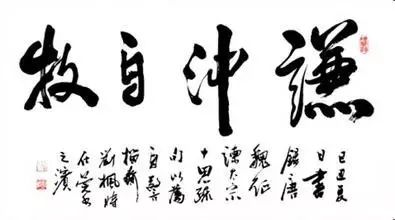 謙沖自牧
己丑夏
日書
錄唐
魏征
諫太宗
十思疏
句以為
自警
劉楓時
在
之濱